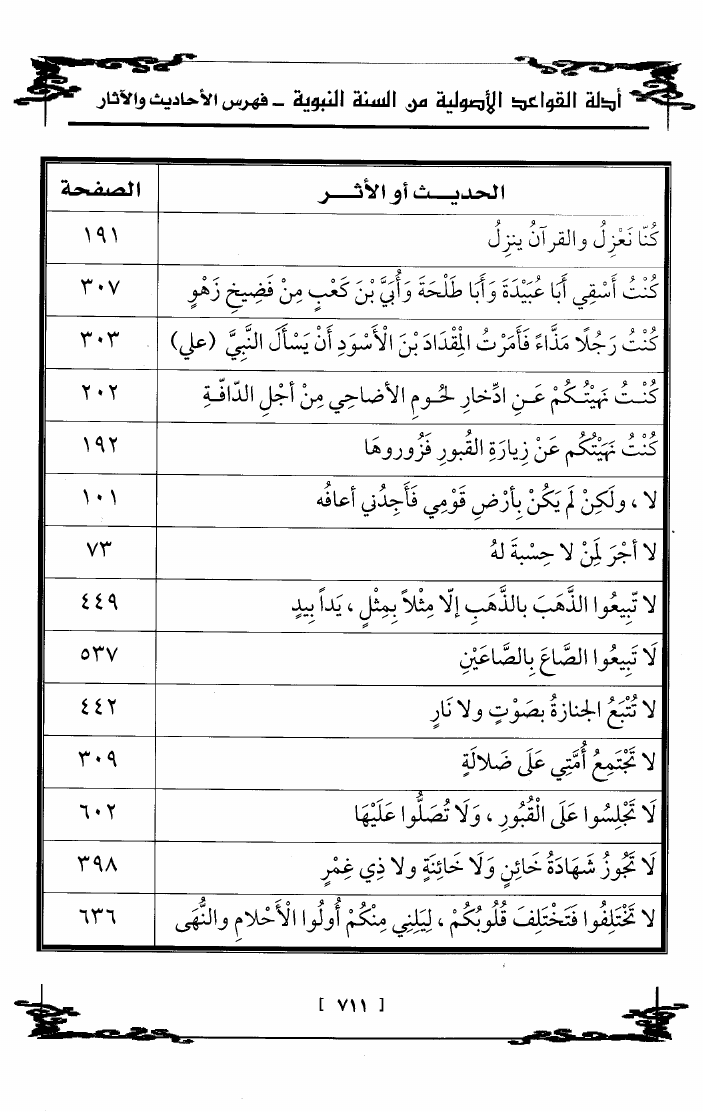 أدلة القواعد الأصولية من السنة النبوية - فهرس الأحاديث والآثار
الحديـــث أو الأثـــر الصفحة
كُنّا نَعْزِلُ والقرآنُ ينزِلُ ١٩١
كُنْتُ أَسْقِي أَبَا عُبَيْدَةَ وَأَبَا طَلْحَةَ وَأُبَيَّ بْنَ كَعْبٍ مِنْ فَضِيخِ زَهْوٍ ٣٠٧
كُنْتُ رَجُلًا مَذَّاءً فَأَمَرْتُ الْمِقْدَادَ بْنَ الْأَسْوَدِ أَنْ يَسْأَلَ النَّبِيَّ (علي) ٣٠٣
كُنْـتُ نَهَيْتُـكُمْ عَـنِ ادِّخارِ لحُـومِ الأضاحِي مِنْ أجْلِ الدّافَّـةِ ٢٠٢
كُنْتُ نَهَيْتُكُم عَنْ زِيارَةِ القُبورِ فَزُوروهَا ١٩٢
لا ، ولَكِنْ لَمْ يَكُنْ بِأرْضِ قَوْمِي فَأَجِدُني أعافُه ١٠١
لا أجْرَ لِمَنْ لا حِسْبةَ لهُ ٧٣
لا تّبِيعُوا الذَّهَبَ بالذَّهَبِ إلّا مِثْلاً بِمِثْلٍ ، يَداً بِيَدٍ ٤٤٩
لَا تَبِيعُوا الصَّاعَ بِالصَّاعَيْنِ ٥٣٧
لا تُتْبَعُ الجنازةُ بصَوْتٍ ولا نَارٍ ٤٤٢
لا تَجْتَمِعُ أُمَّتِي عَلَى ضَلالَةٍ ٣٠٩
لَا تَجْلِسُوا عَلَى الْقُبُورِ ، وَلَا تُصَلُّوا عَلَيْهَا ٦٠٢
لَا تَجُوزُ شَهَادَةُ خَائِنٍ وَلَا خَائِنَةٍ ولا ذِي غِمْرٍ ٣٩٨
لا تَخْتَلِفُوا فَتَخْتَلِفَ قُلُوبُكُمْ ، لِيَلِنِي مِنْكُمْ أُولُوا الْأَحْلامِ والنُّهَى ٦٣٦
[ ٧١١ ]